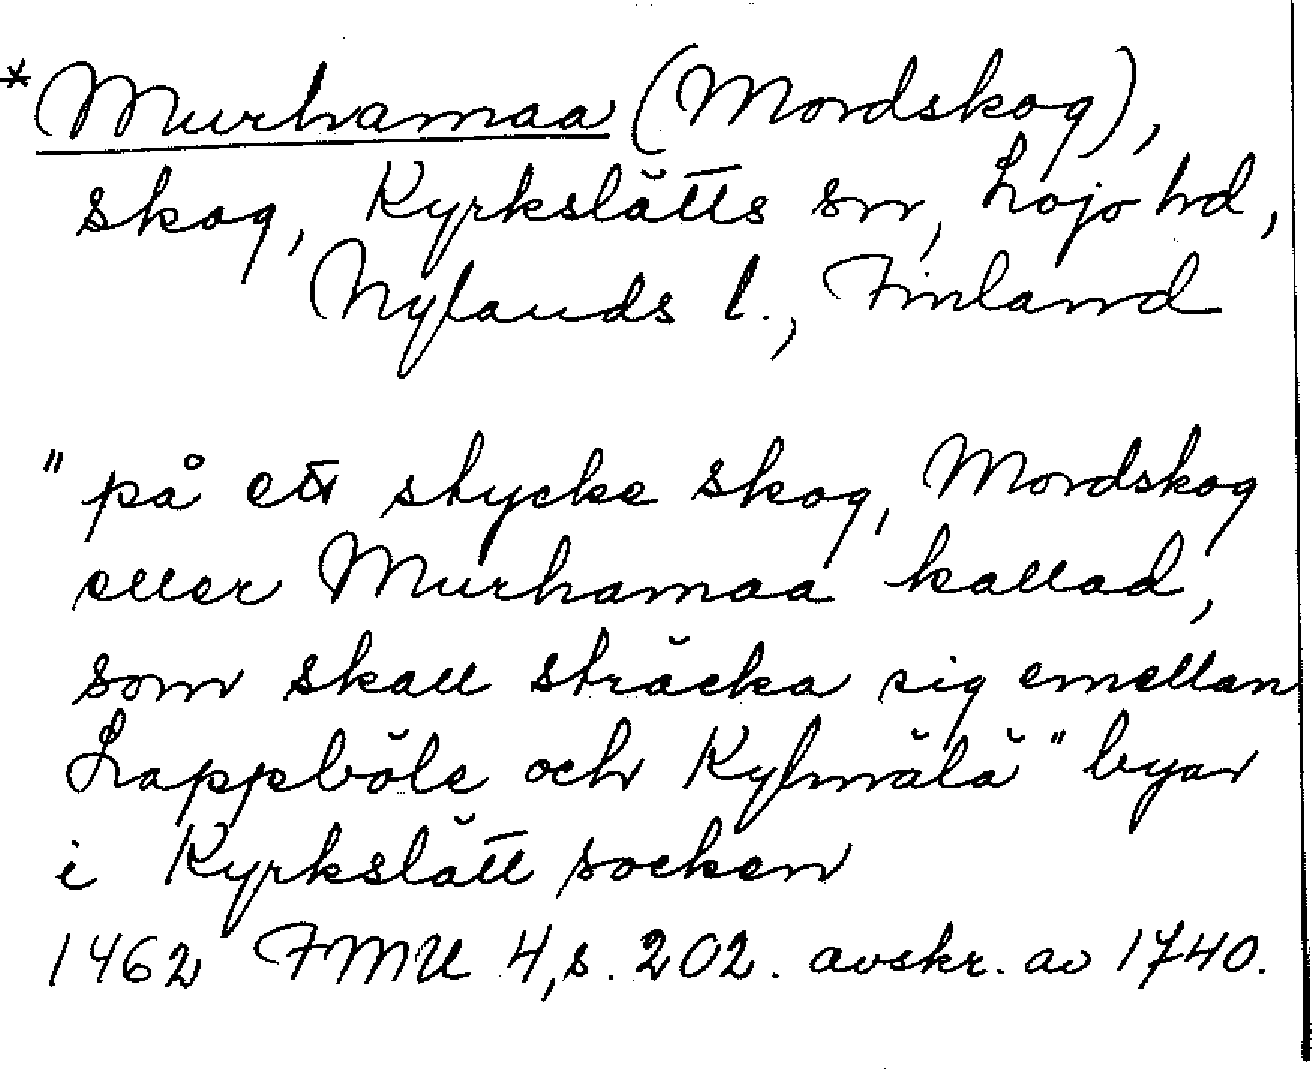 *Murhamaa (Mordskog),
skog, Kyrkslätts sn, Lojo hd,
Nylands l., Finland
"på ett stycke skog, Mordskog
eller Murhamaa kallad,
som skall sträcka sig emellan
Lappböle och Kylmälä" byar
i Kyrkslätt socken
1462 FMU 4, s. 202. avskr. av 1740.